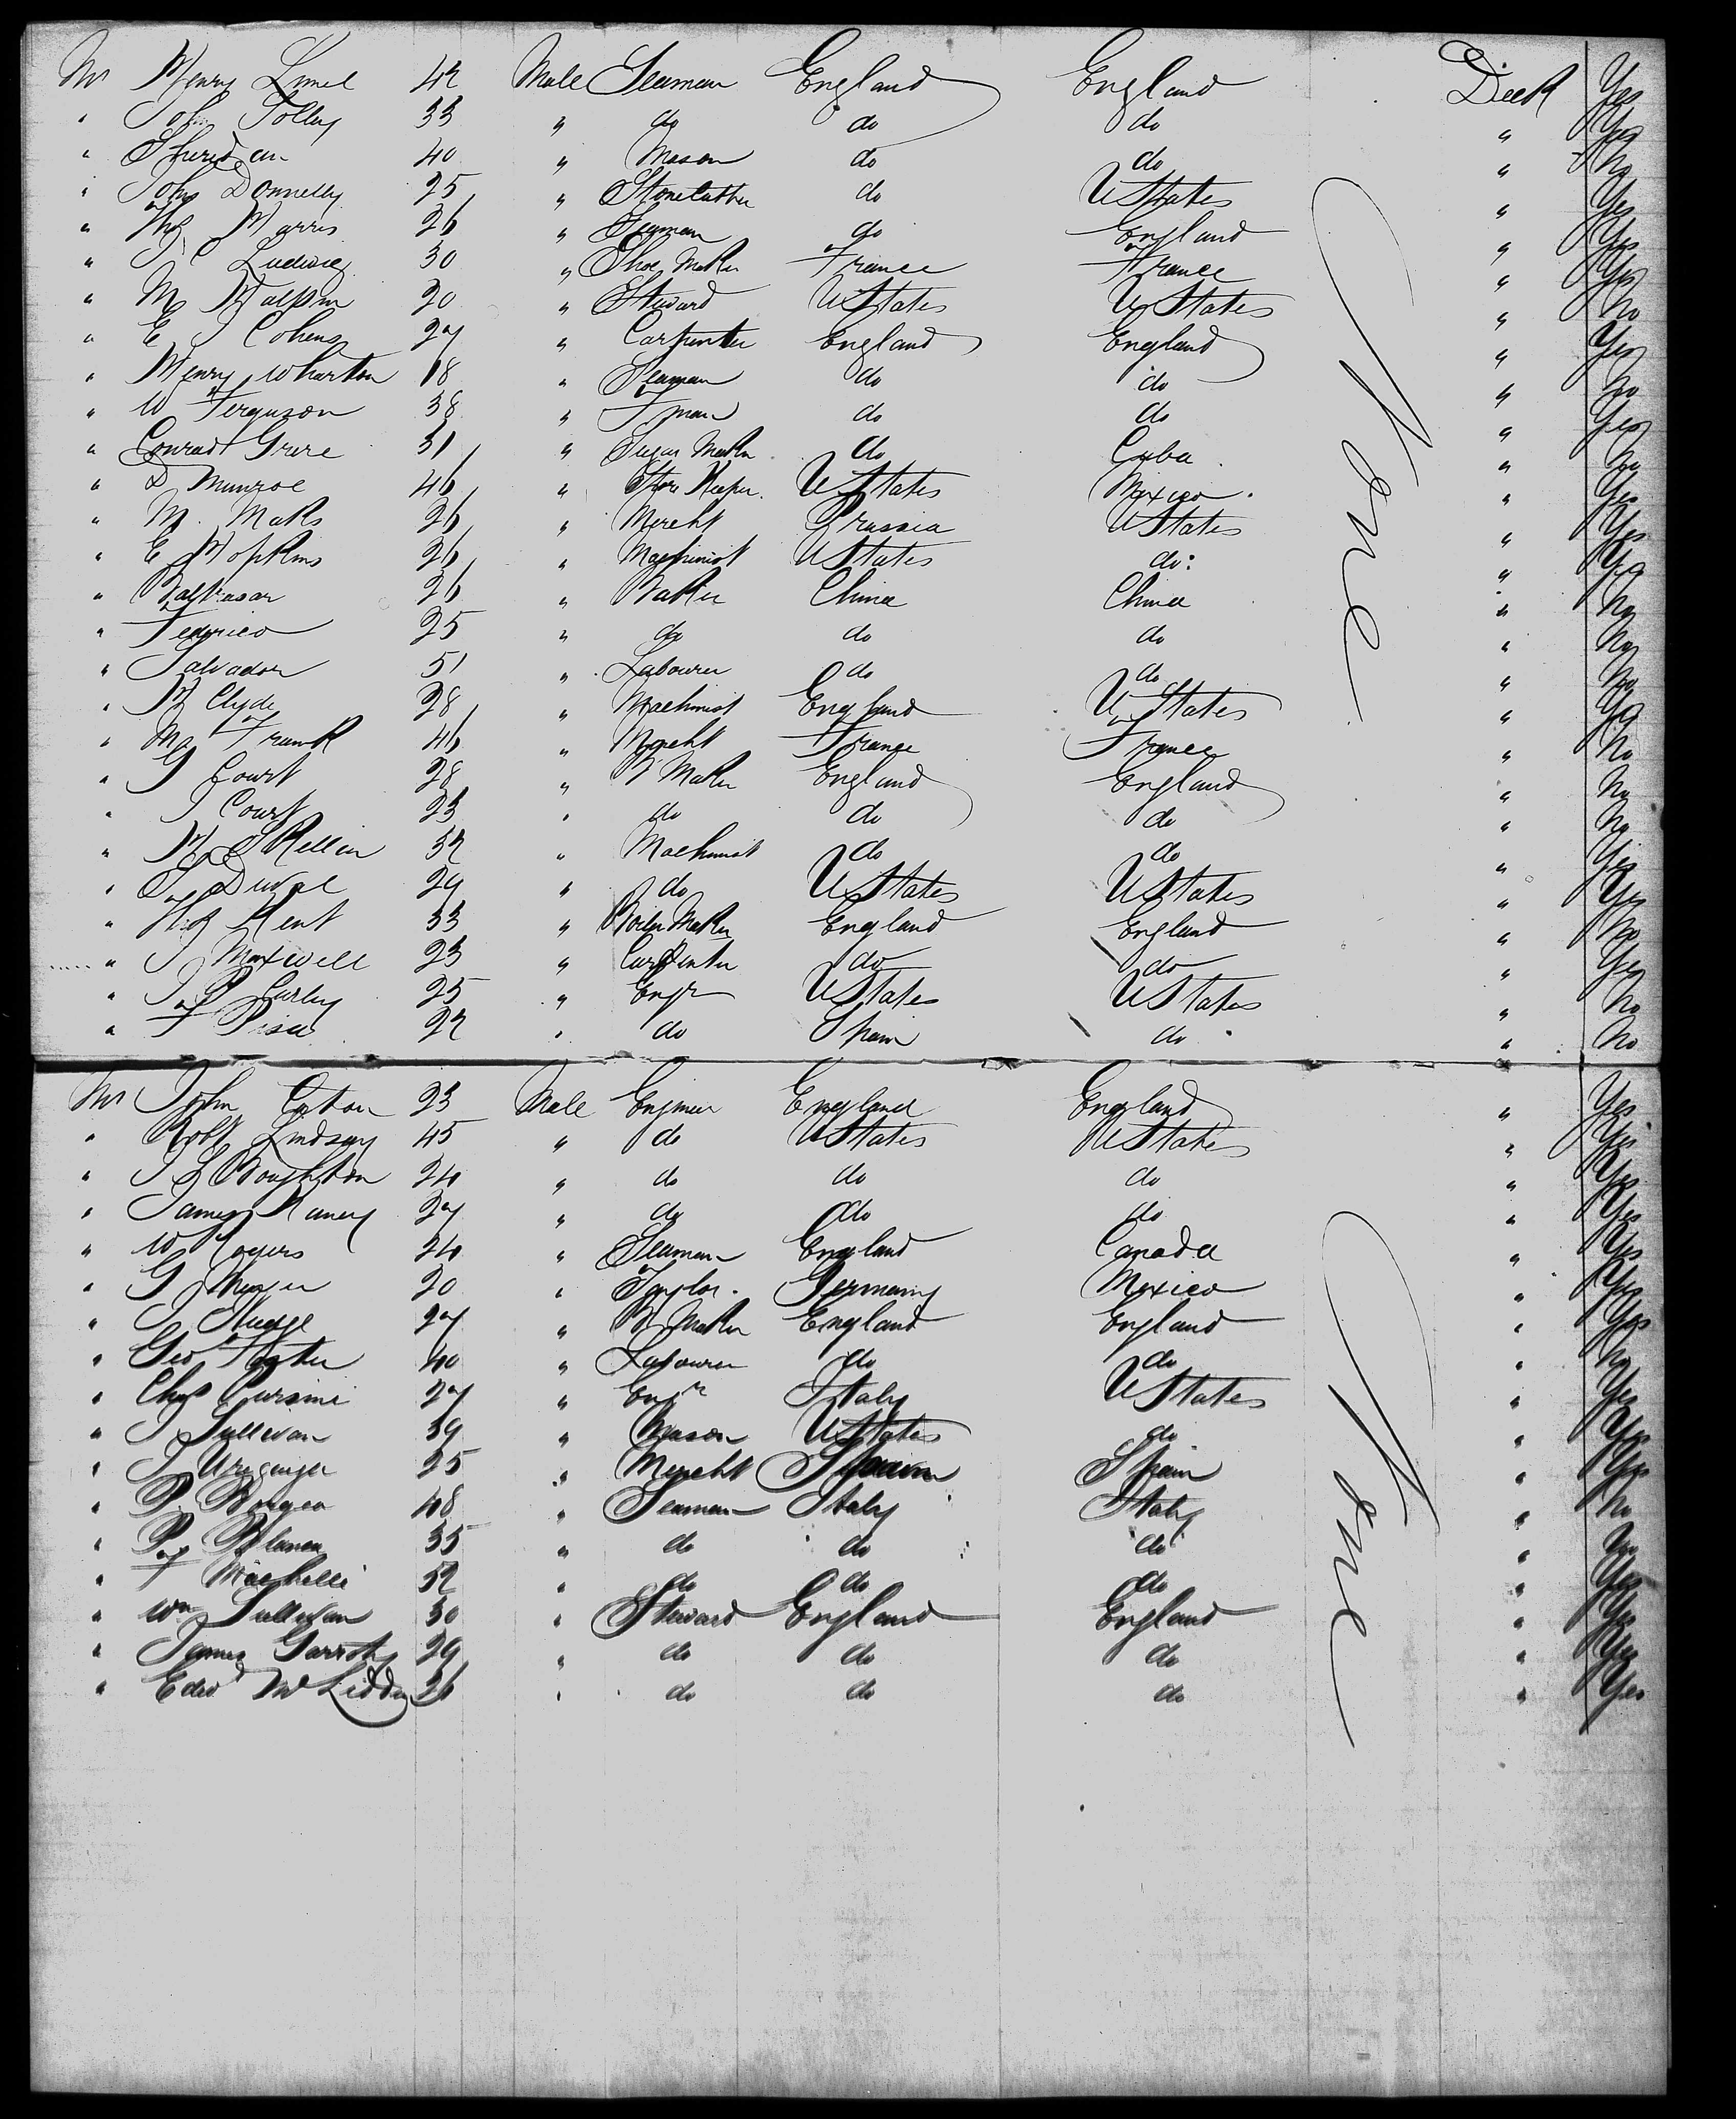 Mr Henry Limel 42 Male Seaman England England Deck Yes
" John Jolley 33 " do do do " Yes
" Sheridan 40 " Mason do do " No
" John Donnelly 25 " Stonecutter do U States " Yes
" Thos Harris 26 " Seaman do England " Yes
" J C Ludwig 30 " Shoe Maker France France " Yes
" M Halpin 20 " Steward U States U States " No
" E J Cohens 27 " Carpenter England England " Yes
" Henry Wharton 18 " Seaman do do " No
" W Ferguson 38 " F man do do " Yes
" Conrad Grere 31 " Sugar Maker do Cuba " No
" D Munroe 46 " Store Keeper. U States Mexico. " Yes
" M. Maks 26 " Mercht Prussia U States " Yes
" E Hopkins 26 " Machinist U States do: " Yes
" Baltrasar 26 " Baker China China " No
" Federico 25 " do do do " No
" Salvador 51 " Labourer do do " No
" H Clyde 28 " Machinist England U States " Yes
" Ms Frank 46 " Mercht France France " No
" G Court 28 " B Maker England England " No
" J Court 23 " do do do " No
" H Skellin 32 " Machinist do do " Yes
" Duval 29 " do U States U States " Yes
" Thos Kent 33 " Boiler Maker England England " No
" J Maxwell 23 " Carpenter do do " Yes
" J P Curley 25 " Engr U States U States " No
" F Pisa 22 " do Spain do " No
Mr John Caton 23 Male Engineer England England " Yes
" Robt Lindsay 45 " do U States U States " Yes
" J S Boughton 24 " do do do " Yes
" James Raney 27 " do do do " Yes
" W Rogers 24 " Seaman England Canada " Yes
" G Meyer 20 " Taylor. Germany Mexico " Yes
" J Kluege 27 " B Maker England England " Yes
" Geo Foster 40 " Labourer do do " No
" Chas Cursini 27 " Engr Italy U States " Yes
" J Sullivan 39 " Mason U States do " Yes
" J 25 " Mercht Spain Spain " Yes
" P. Borgea 48 " Seaman Italy Italy " No
" P Blanca 35 " do do do " No
" F Machelli 52 " do do do " Yes
" Wm Sullivan 30 " Steward England England " Yes
" James Garrity 29 " do do do " Yes
" Edwd McLidden 26 " do do do " Yes
None
None